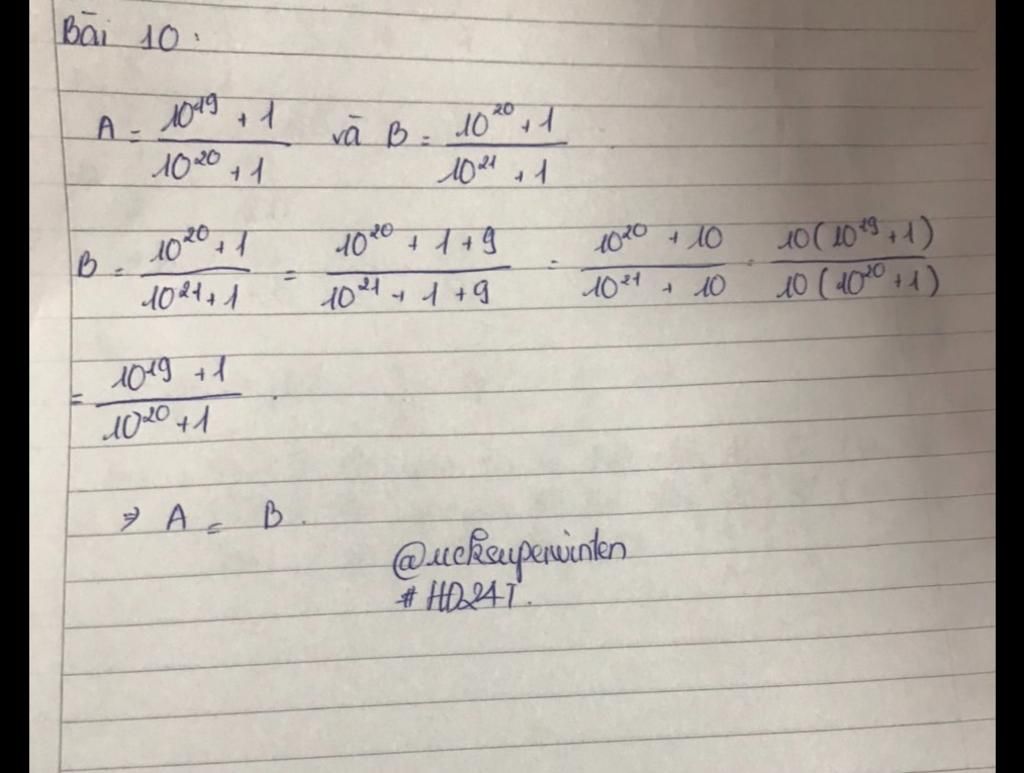 Bài 10:
A = \frac{10^{19} + 1}{10^{20} + 1} và B = \frac{10^{20} + 1}{10^{21} + 1}
B = \frac{10^{20} + 1}{10^{21} + 1} = \frac{10^{20} + 1 + 9}{10^{21} + 1 + 9} = \frac{10^{20} + 10}{10^{21} + 10} = \frac{10(10^{19} + 1)}{10(10^{20} + 1)}
= \frac{10^{19} + 1}{10^{20} + 1}.
⇒ A = B.
#HD24T.